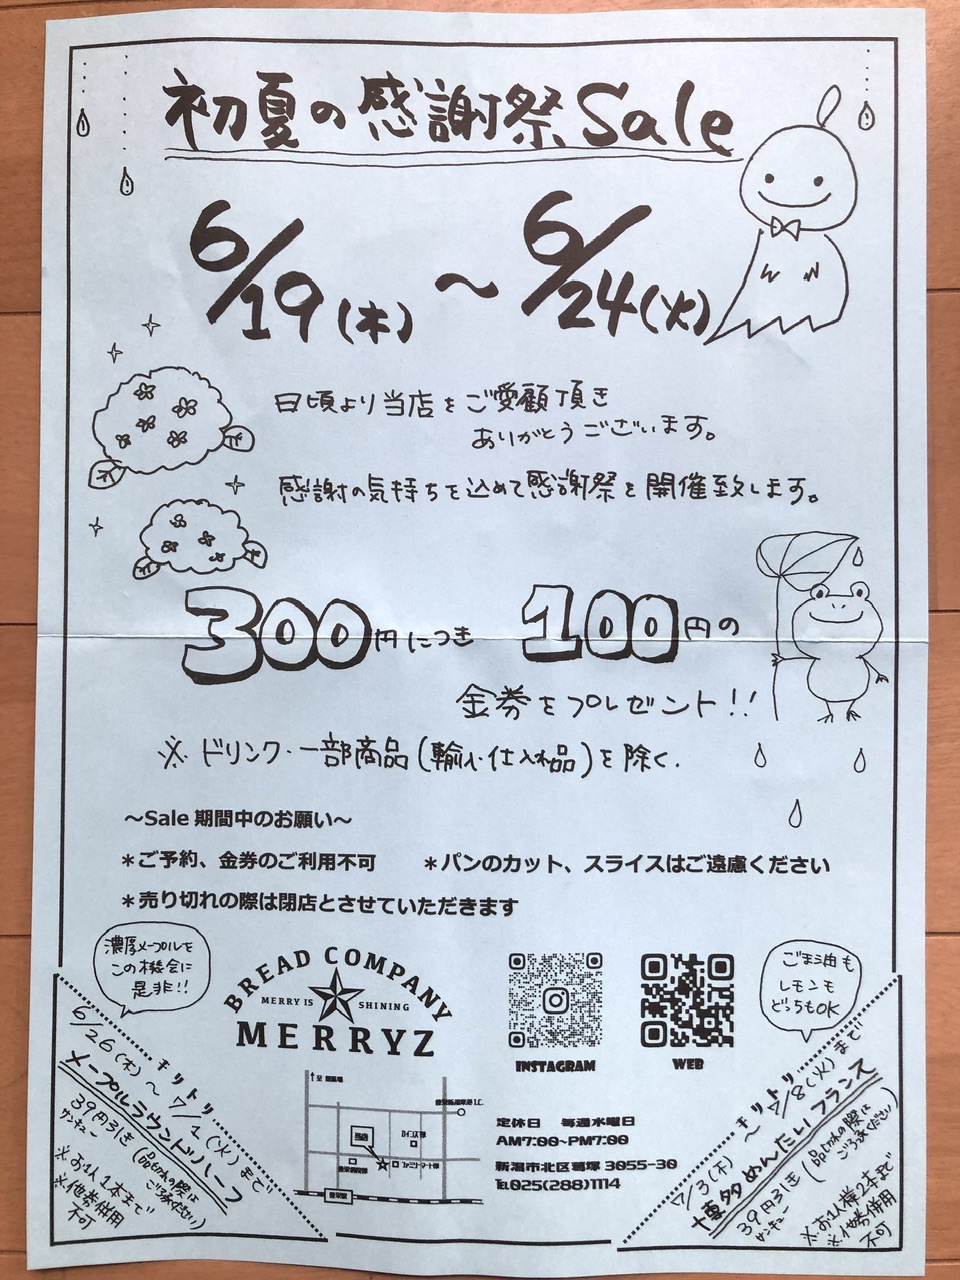 初夏の感謝祭Sale
6/19(木)～6/24(火)
日頃より当店をご愛顧頂き
ありがとうございます。
感謝の気持ちを込めて感謝祭を開催致します。
300円につき 100円の
金券をプレゼント!!
※ドリンク・一部商品(輸入・仕入れ品)を除く.
～Sale 期間中のお願い～
＊ご予約、金券のご利用不可 ＊パンのカット、スライスはご遠慮ください
＊売り切れの際は閉店とさせていただきます
濃厚メープルを
この機会に
是非!!
BREAD COMPANY
MERRY IS SHINING
MERRYZ
INSTAGRAM
WEB
ごま油も
レモンも
どっちもOK
キリトリ
6/26(木)～7/1(火)まで
メープルラウンドハーフ
39円引き(品切れの際はご了承ください)
サンキュー
※お1人1本まで
※他券併用
不可
当店
ファミリーマート様
豊栄駅
定休日 毎週水曜日
AM7:00~PM7:00
新潟市北区葛塚 3055-30
TEL025(288)1114
キリトリ
7/3(木)～7/8(火)まで
博多めんたいフランス
39円引き(品切れの際はご了承ください)
サンキュー
※お1人様2本まで
※他券併用
不可